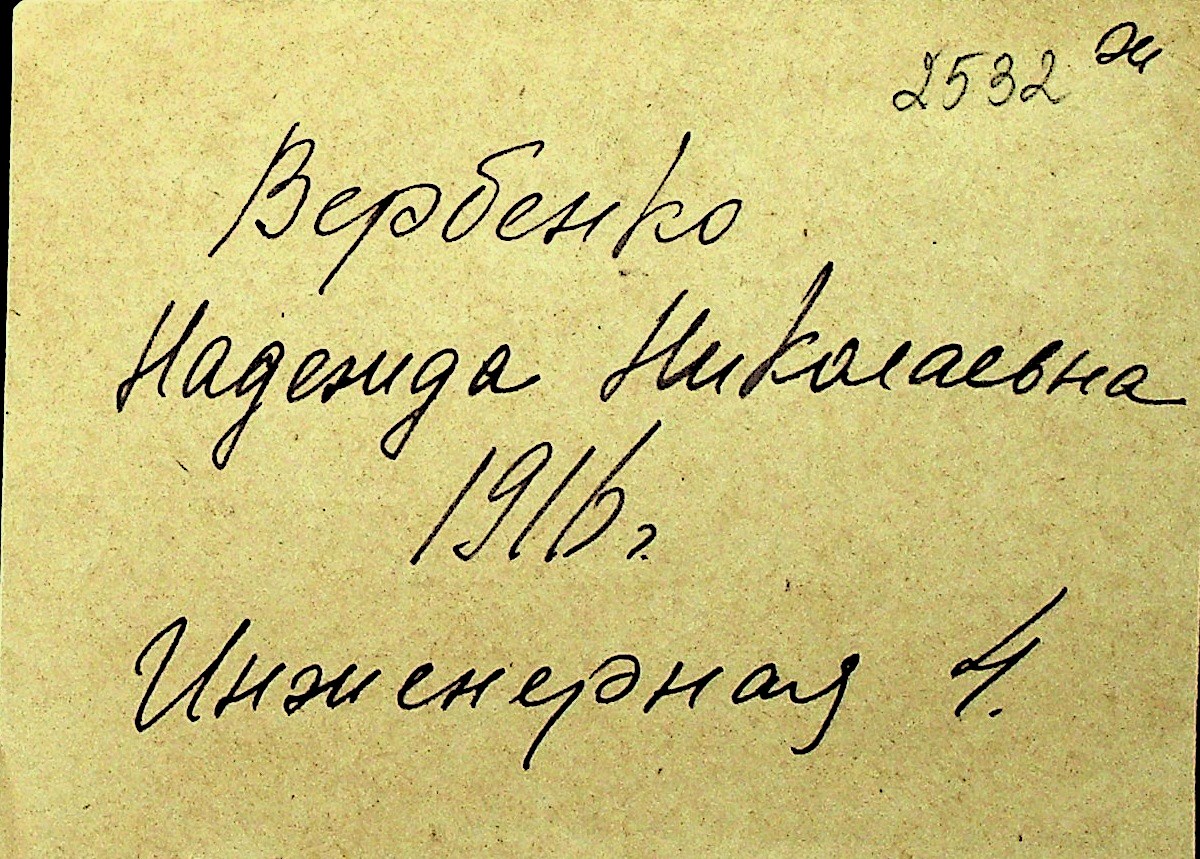 2532 ж
Вербенко
Надежда Николаевна
1916 г.
Инженерная 4.